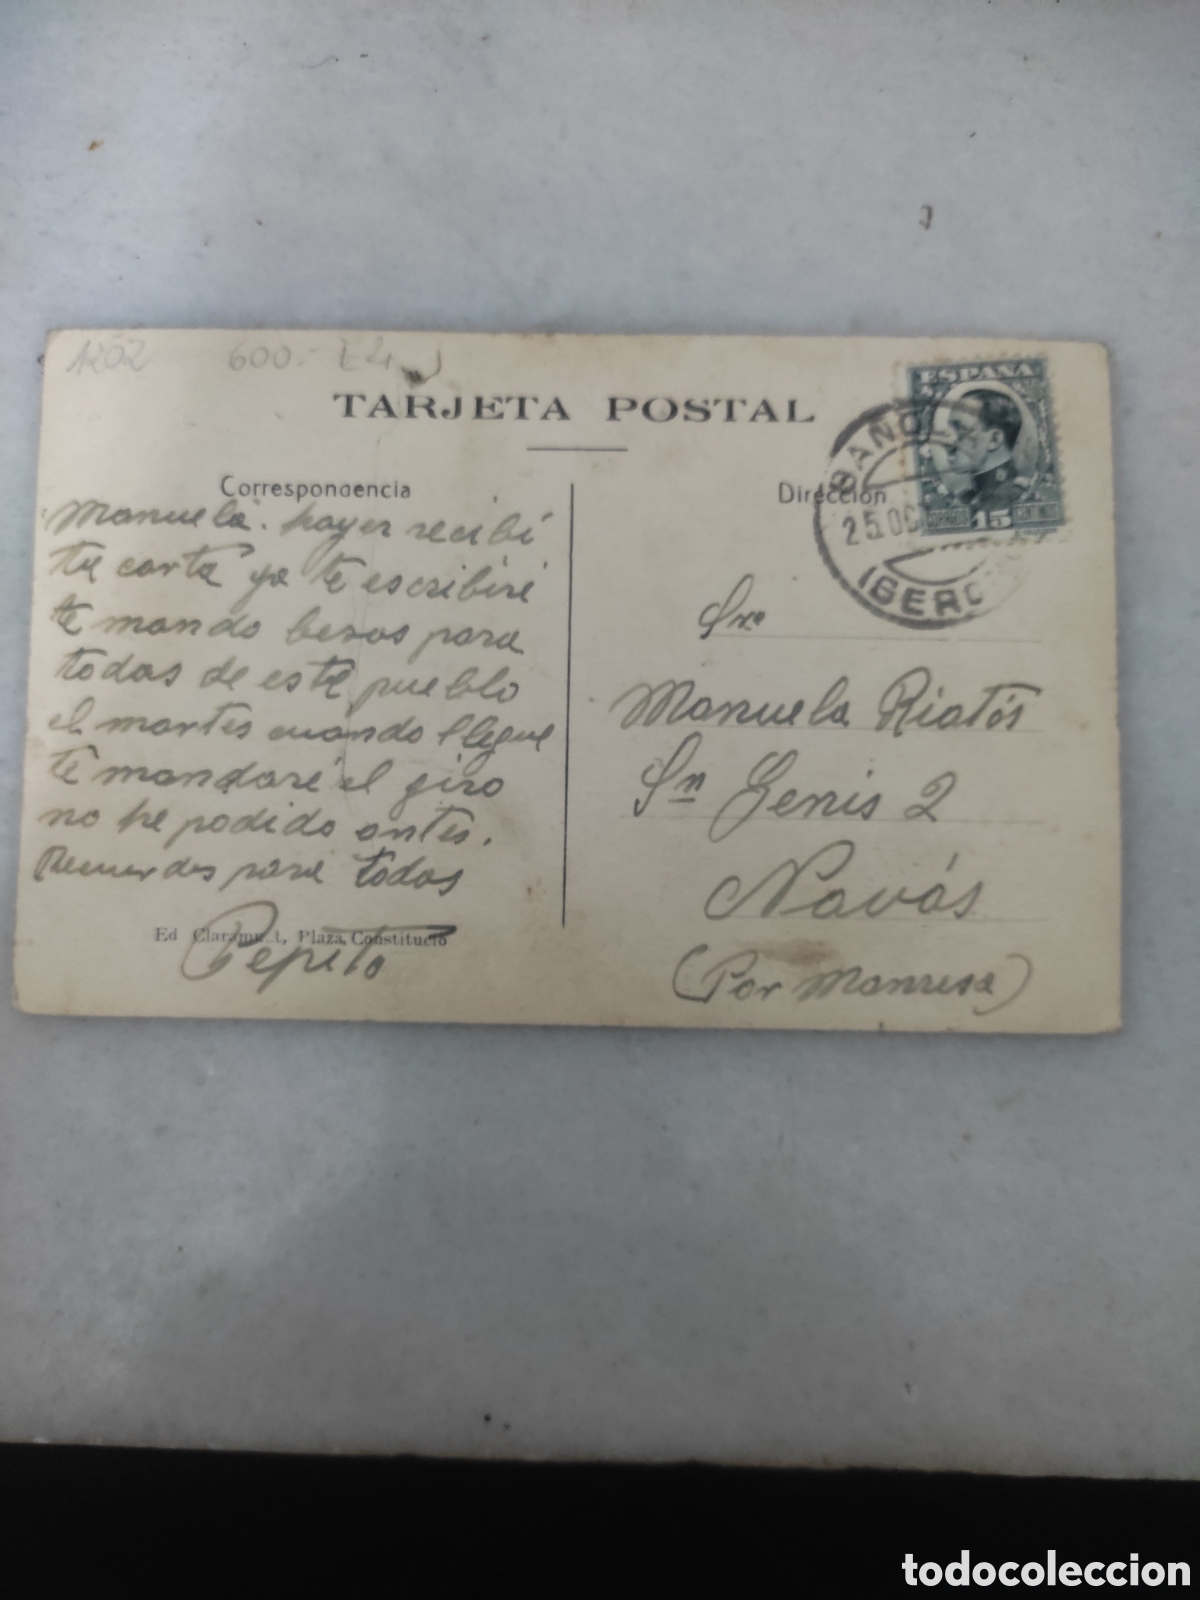 1202 600.-
TARJETA POSTAL
ESPAÑA
CORREOS 15 CENTIMOS
BAÑOL
25.OC
(GERO
Correspondencia
Manuela. hayer recibí
tu carta ya te escribiré
te mando besos para
todas de este pueblo
el martes cuando llegue
te mandaré el giro
no he podido antes.
Recuerdos para todas
Pepito
Ed Claram t, Plaza Constitució
Dirección
Sra
Manuela Riatós
Sn Genis 2
Navás
(Por Manresa)
todocoleccion